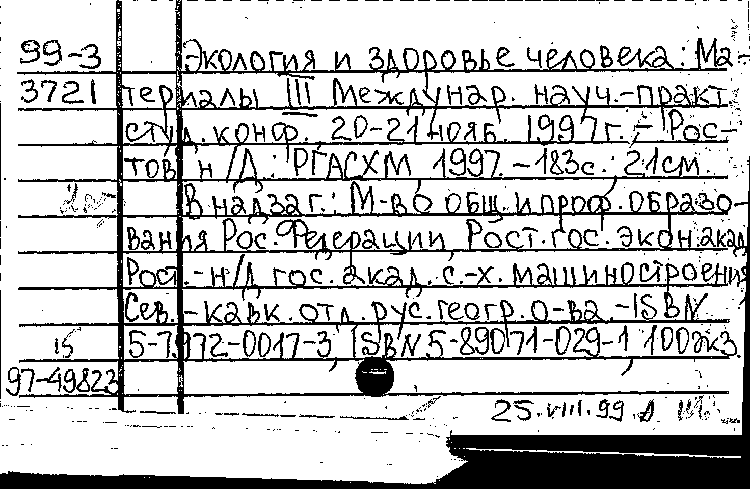 99-3 Экология и здоровье человека: Ма-
3721 териалы III Междунар. науч.-практ.
студ. конф., 20-21 нояб. 1997г. - Рос-
тов н/Д.: РГАСХМ, 1997. - 183с.; 21см.
В надзаг.: М-во общ. и проф. образо-
вания Рос. Федерации, Рост. гос. экон. акад.
Рост.-н/Д гос. акад. с.-х. машиностроения
Сев.-кавк. отд. рус. геогр. о-ва. - ISBN
15 5-7972-0017-3, ISBN 5-89071-029-1, 100экз.
97-49823
25.VIII.99